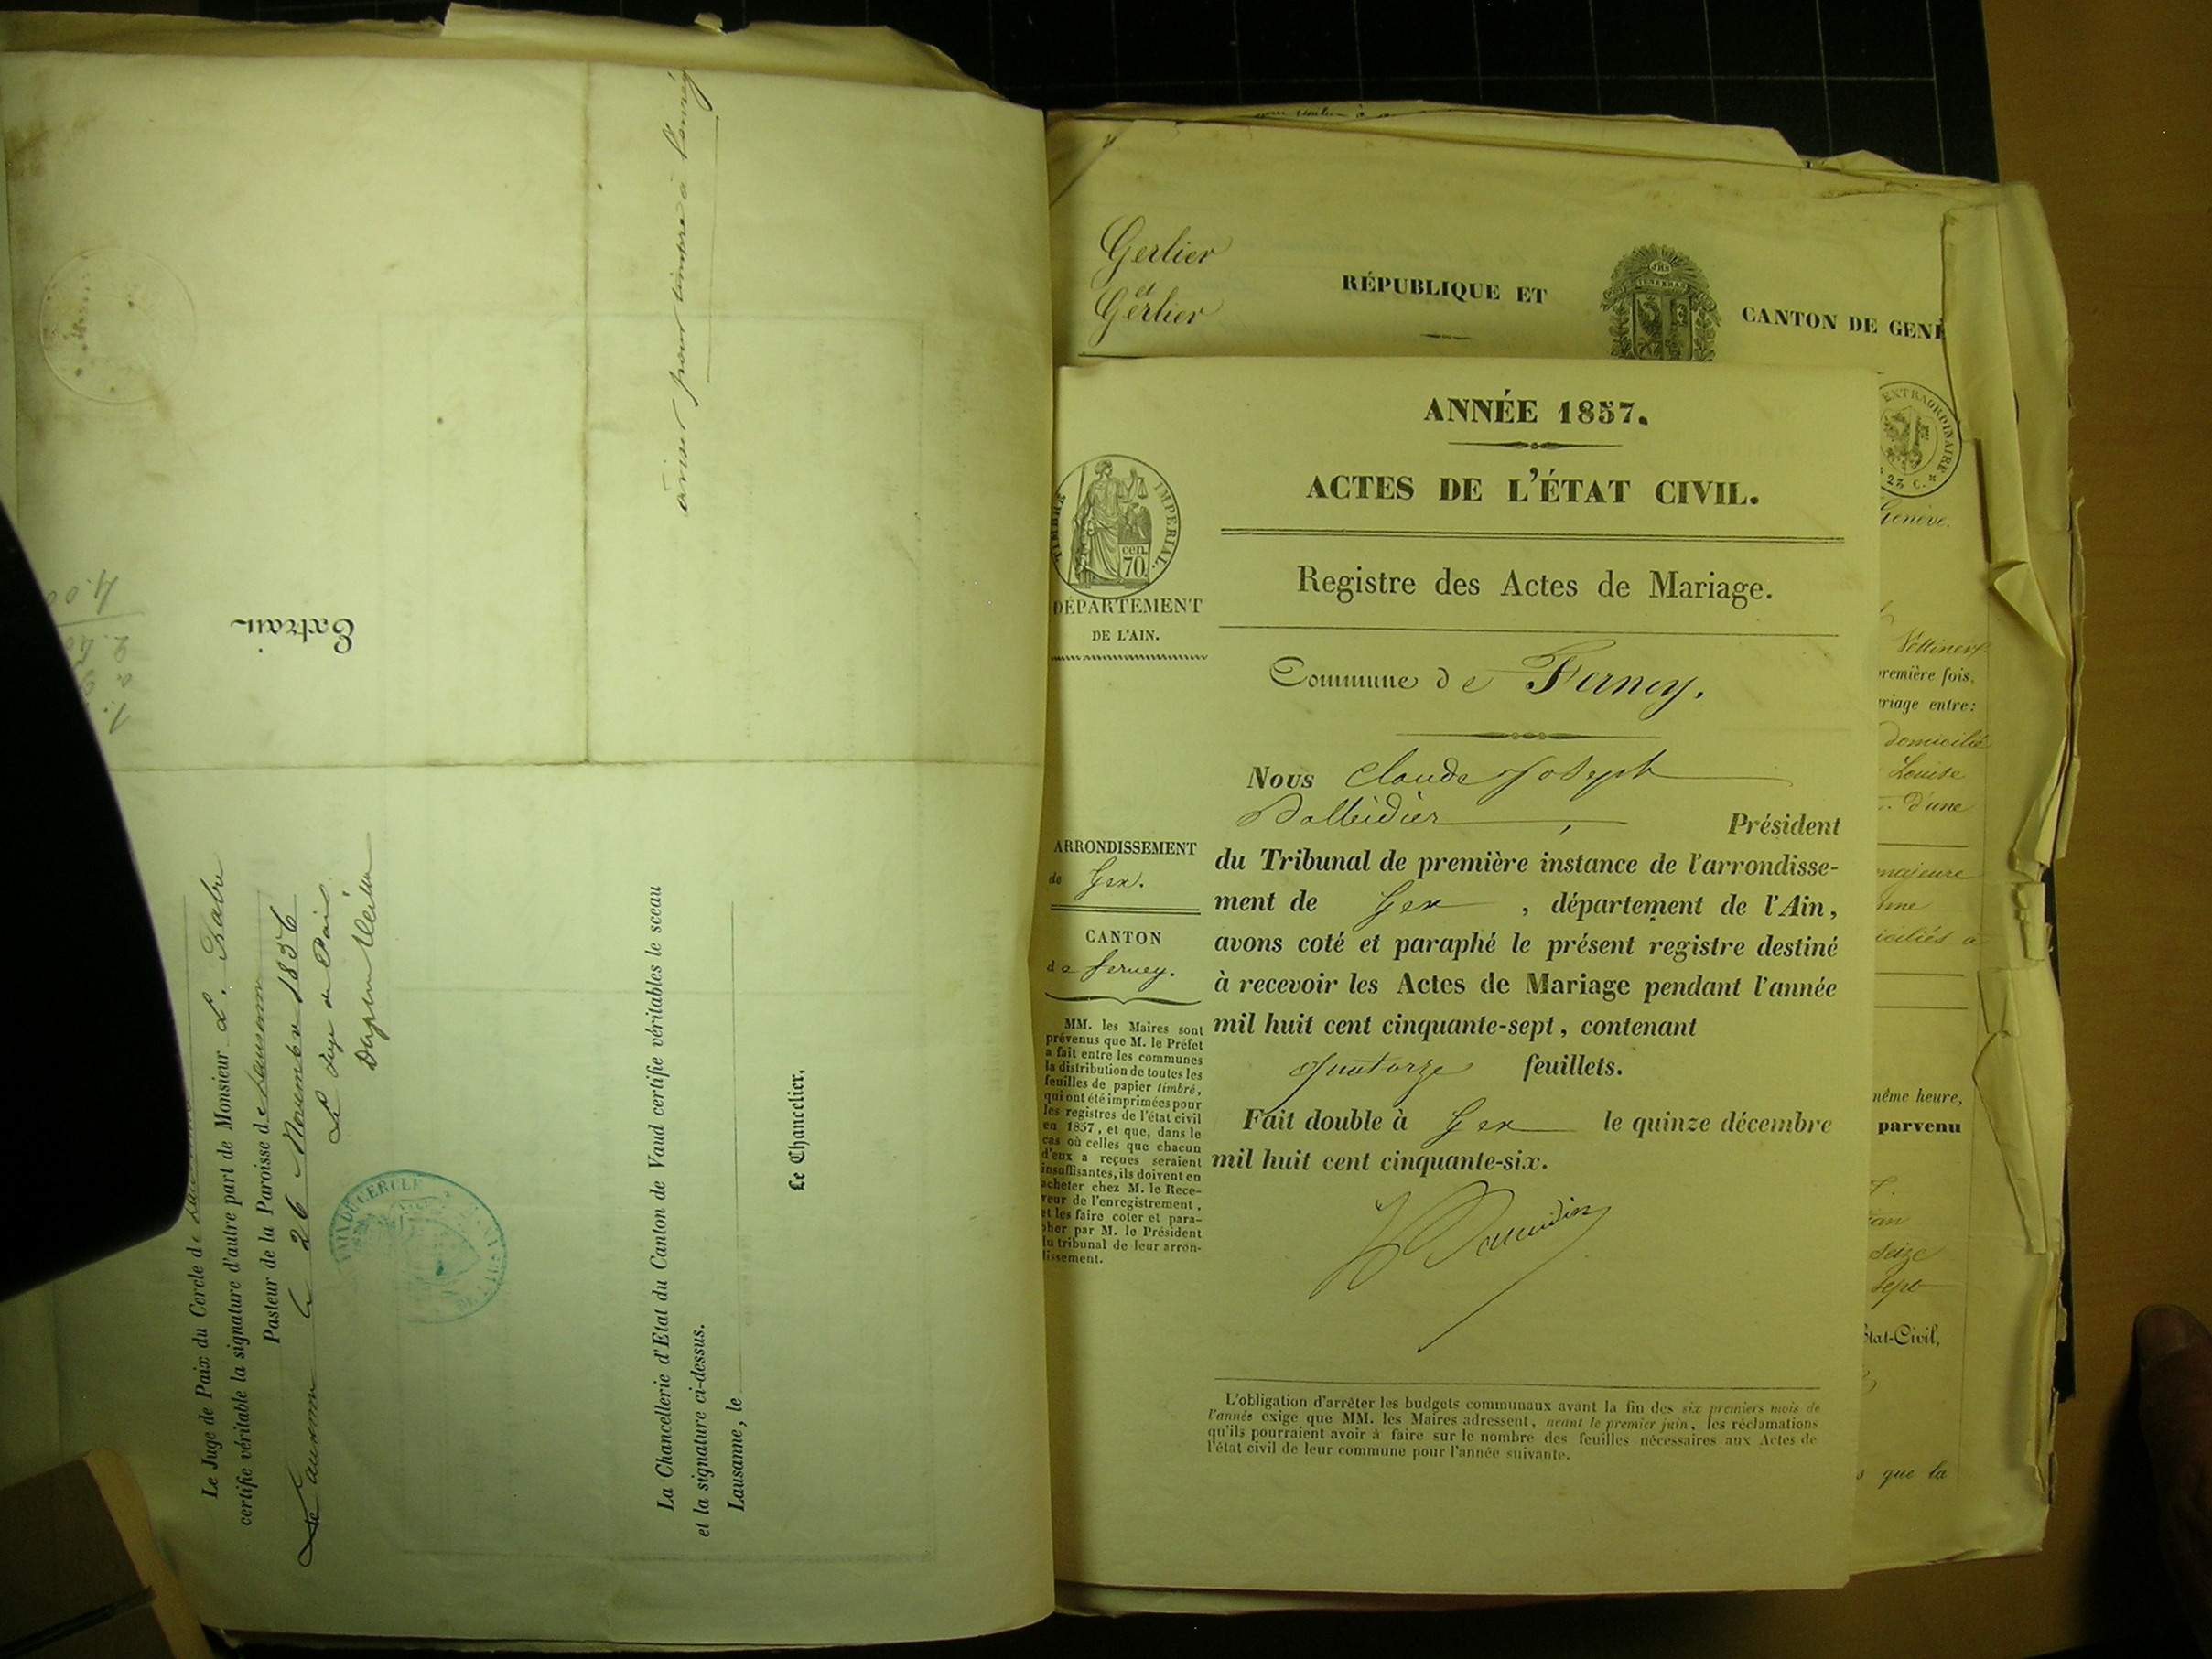 Le Juge de Paix du Cercle de Lausanne
certifie véritable la signature d'autre part de Monsieur L.
Pasteur de la Paroisse de Lausanne
Lausanne le 26 Novembre 1856
Le Juge de Paix
La Chancellerie d'Etat du Canton de Vaud certifie véritables le sceau
et la signature ci-dessus.
Lausanne, le
Le Chancelier,
pour timbre à
Extrait
Gerlier
et
Gerlier
RÉPUBLIQUE ET CANTON DE GENÈ
EXTRAORDINAIRE
25 C.
Genève.
première fois,
riage entre:
domicilié
Louise
d'une
majeure
iciliés à
même heure,
parvenu
Seize
sept
Etat-Civil,
que la
ANNÉE 1857.
ACTES DE L'ÉTAT CIVIL.
Registre des Actes de Mariage.
TIMBRE IMPERIAL.
cen.
70
DÉPARTEMENT
DE L'AIN.
Commune de Ferney.
Nous Claude Joseph
Président
du Tribunal de première instance de l'arrondisse-
ment de Gex, département de l'Ain,
avons coté et paraphé le présent registre destiné
à recevoir les Actes de Mariage pendant l'année
mil huit cent cinquante-sept, contenant
quatorze feuillets.
Fait double à Gex le quinze décembre
mil huit cent cinquante-six.
ARRONDISSEMENT
de Gex.
CANTON
de Ferney.
MM. les Maires sont
prévenus que M. le Préfet
a fait entre les communes
la distribution de toutes les
feuilles de papier timbré,
qui ont été imprimées pour
les registres de l'état civil
en 1857, et que, dans le
cas où celles que chacun
d'eux a reçues seraient
insuffisantes, ils doivent en
acheter chez M. le Rece-
veur de l'enregistrement,
et les faire coter et para-
pher par M. le Président
du tribunal de leur arron-
dissement.
L'obligation d'arrêter les budgets communaux avant la fin des six premiers mois de
l'année exige que MM. les Maires adressent, avant le premier juin, les réclamations
qu'ils pourraient avoir à faire sur le nombre des feuilles nécessaires aux Actes de
l'état civil de leur commune pour l'année suivante.